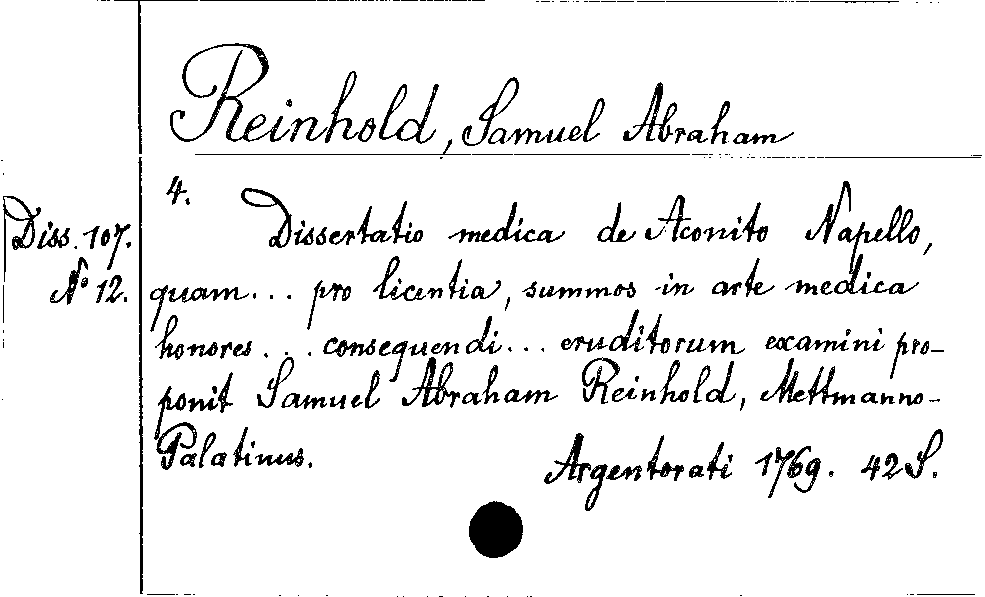 Reinhold, Samuel Abraham
4.
Diss. 107.
No 12.
Dissertatio medica de Aconito Napello,
quam... pro licentia, summos in arte medica
honores... consequendi... eruditorum examini pro-
ponit Samuel Abraham Reinhold, Mettmanno-
Palatinus.
Argentorati 1769. 42 S.